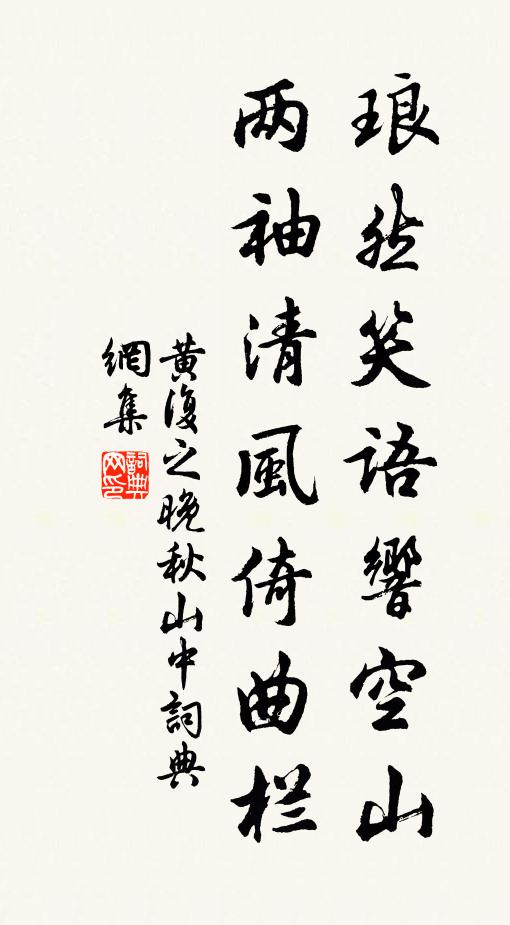 琅然笑语響空山
两袖清風倚曲栏
黄復之晚秋山中詞典
網集
詞典
网印